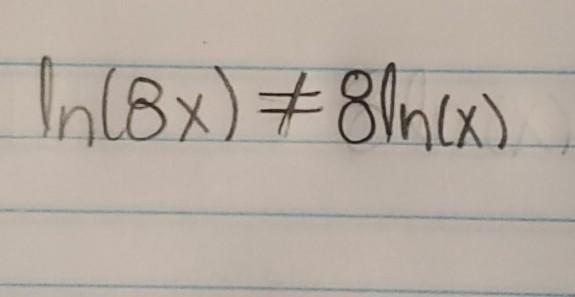 ln(8x) ≠ 8ln(x)